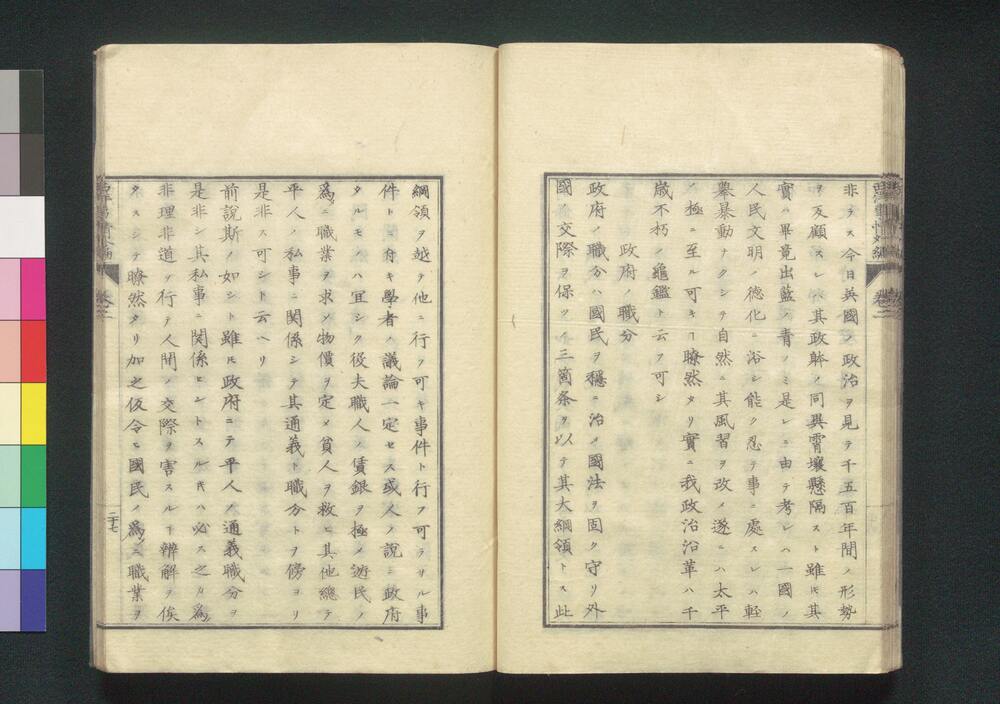 非ラス今日英國ノ政治ヲ見テ千五百年間ノ形勢
ヲ反顧スレハ其政躰ノ同異霄壤懸隔スト雖𪜈其
實ハ畢竟出藍ノ青ノミ是レニ由テ考レハ一國ノ
人民文明ノ德化ニ浴シ能ク忍テ事ニ處スレハ輕
擧暴動ナクシテ自然ニ其風習ヲ改メ遂ニハ太平
ノ極ニ至ル可キヿ瞭然タリ實ニ我政治沿革ハ千
歳不朽ノ龜鑑ト云フ可シ
政府ノ職分
政府ノ職分ハ國民ヲ穩ニ治メ國法ヲ固ク守リ外
國ノ交際ヲ保ツノ三箇条ヲ以テ其大綱領トス此
綱領ヲ越テ他ニ行フ可キ事件ト行フ可ラサル事
件トニ付キ學者ノ議論一定セス或人ノ説ニ政府
タルモノハ宜シク役夫職人ノ賃銀ヲ極メ遊民ノ
爲ニ職業ヲ求メ物價ヲ定メ貧人ヲ救ヒ其他總テ
平人ノ私事ニ關係シテ其通義ト職分トヲ傍ヨリ
是非ス可シト云ヘリ
前説斯ノ如シト雖𪜈政府ニテ平人ノ通義職分ヲ
是非シ其私事ニ關係セントスル𪜈ハ必ス之カ爲
非理非道ヲ行テ人間ノ交際ヲ害スルヿ辨解ヲ俟
タスシテ瞭然タリ加之仮令ヒ國民ノ爲ニ職業ヲ
二十七
卷之二